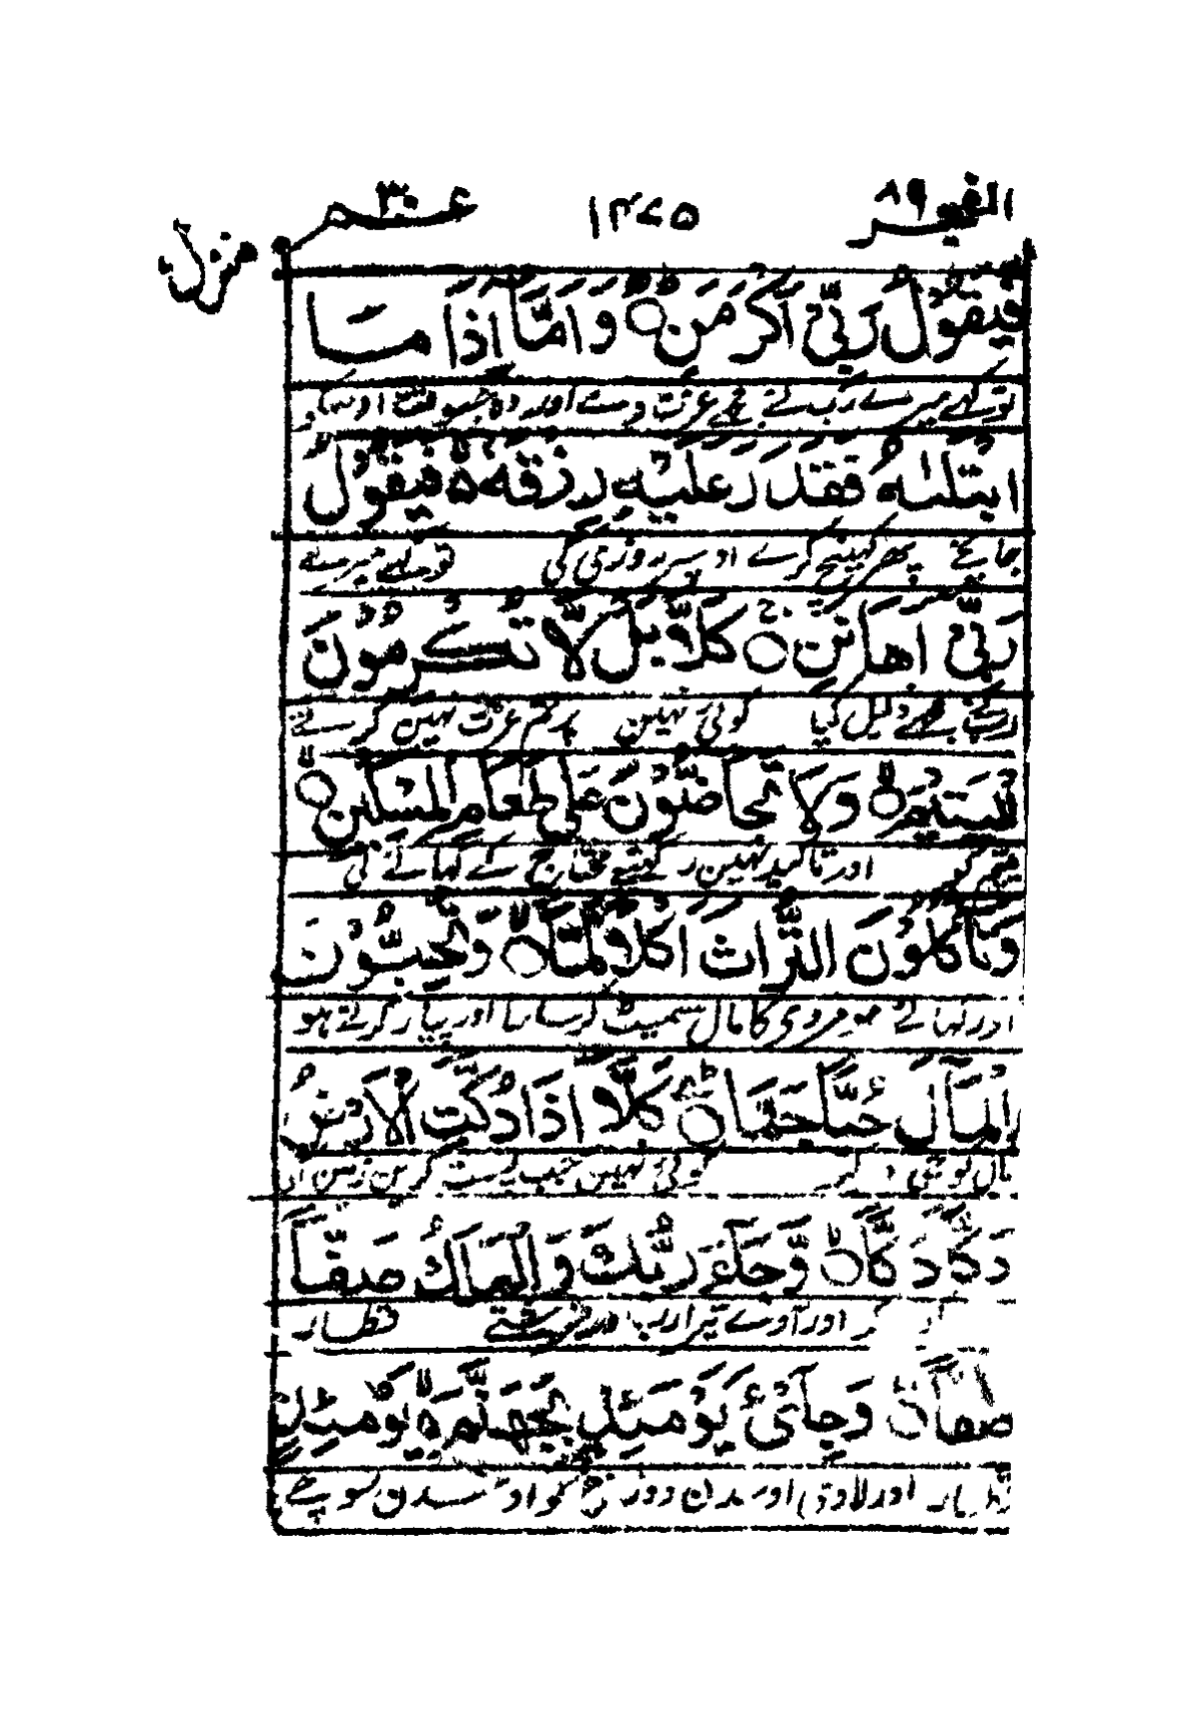 الفجر ٨٩ ١٢٧٥ عم ٣٠
منزل
فَيَقُوْلُ رَبِّيْٓ اَكْرَمَنِ ۝ وَاَمَّآ اِذَا مَا
تو کہے میرے رب نے مجھے عزت دی اور وہ جسوقت اوسکو
ابْتَلٰىهُ فَقَدَرَ عَلَيْهِ رِزْقَهٗ ۙ فَيَقُوْلُ
جانچے پھر کھینچ کرے اوسپر روزی کی تو کہے میرے
رَبِّيْٓ اَهَانَنِ ۝ كَلَّا بَلْ لَّا تُكْرِمُوْنَ
رب نے مجھے ذلیل کیا کوئی نہین پر تم عزت نہین کرتے
الْيَتِيْمَ ۝ وَلَا تَحٰٓضُّوْنَ عَلٰى طَعَامِ الْمِسْكِيْنِ ۝
یتیم کو اور تاکید نہین رکھتے محتاج کے کھانے کی
وَتَاْكُلُوْنَ التُّرَاثَ اَكْلًا لَّمًّا ۝ وَّتُحِبُّوْنَ
اور کھاتے ہو مردی کا مال سمیٹ کر سارا اور پیار کرتے ہو
الْمَالَ حُبًّا جَمًّا ۝ كَلَّآ اِذَا دُكَّتِ الْاَرْضُ
مال کو جی کر کوئی نہین جب پست کرین زمین
دَكًّا دَكًّا ۝ وَّجَآءَ رَبُّكَ وَالْمَلَكُ صَفًّا
کر اور آوے تیرا رب اور فرشتے قطار
صَفًّا ۝ وَجِايْٓءَ يَوْمَئِذٍۭ بِجَهَنَّمَ ۙ يَوْمَئِذٍ
قطار اور لاوین اوسدن دوزخ کو اوسدن سوچے